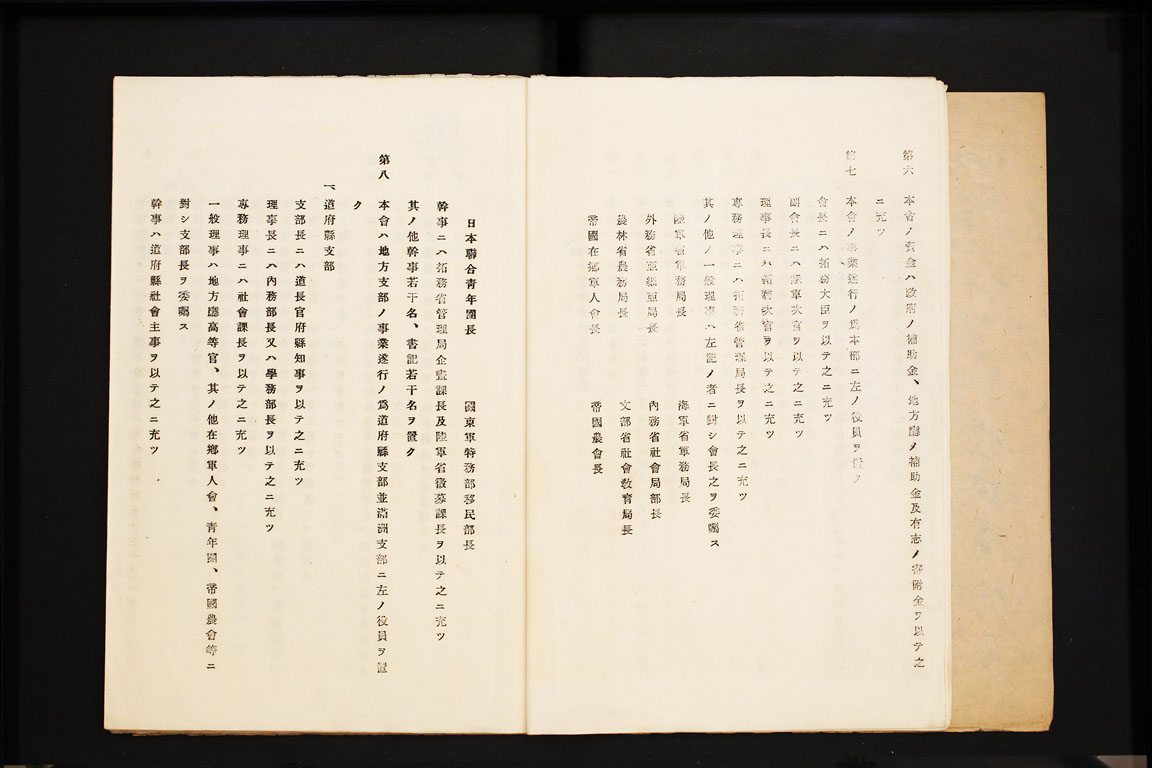 第六 本會ノ資金ハ政府ノ補助金、地方廳ノ補助金及有志ノ寄附金ヲ以テ之
ニ充ツ
第七 本會ノ事業遂行ノ爲本部ニ左ノ役員ヲ置ク
會長ニハ拓務大臣ヲ以テ之ニ充ツ
副會長ニハ陸軍次官ヲ以テ之ニ充ツ
理事長ニハ拓務次官ヲ以テ之ニ充ツ
專務理事ニハ拓務省管理局長ヲ以テ之ニ充ツ
其ノ他ノ一般理事ハ左記ノ者ニ對シ會長之ヲ委囑ス
陸軍省軍務局長 海軍省軍務局長
外務省亞細亞局長 內務省社會局部長
農林省農務局長 文部省社會敎育局長
帝國在鄕軍人會長 帝國農會長
日本聯合靑年團長 關東軍特務部移民部長
幹事ニハ拓務省管理局企畫課長及陸軍省徵募課長ヲ以テ之ニ充ツ
其ノ他幹事若干名、書記若干名ヲ置ク
第八 本會ハ地方支部ノ事業遂行ノ爲道府縣支部並滿洲支部ニ左ノ役員ヲ置
ク
一、道府縣支部
支部長ニハ道長官府縣知事ヲ以テ之ニ充ツ
理事長ニハ內務部長又ハ學務部長ヲ以テ之ニ充ツ
專務理事ニハ社會課長ヲ以テ之ニ充ツ
一般理事ハ地方廳高等官、其ノ他在鄕軍人會、靑年團、帝國農會等ニ
對シ支部長ヲ委囑ス
幹事ハ道府縣社會主事ヲ以テ之ニ充ツ